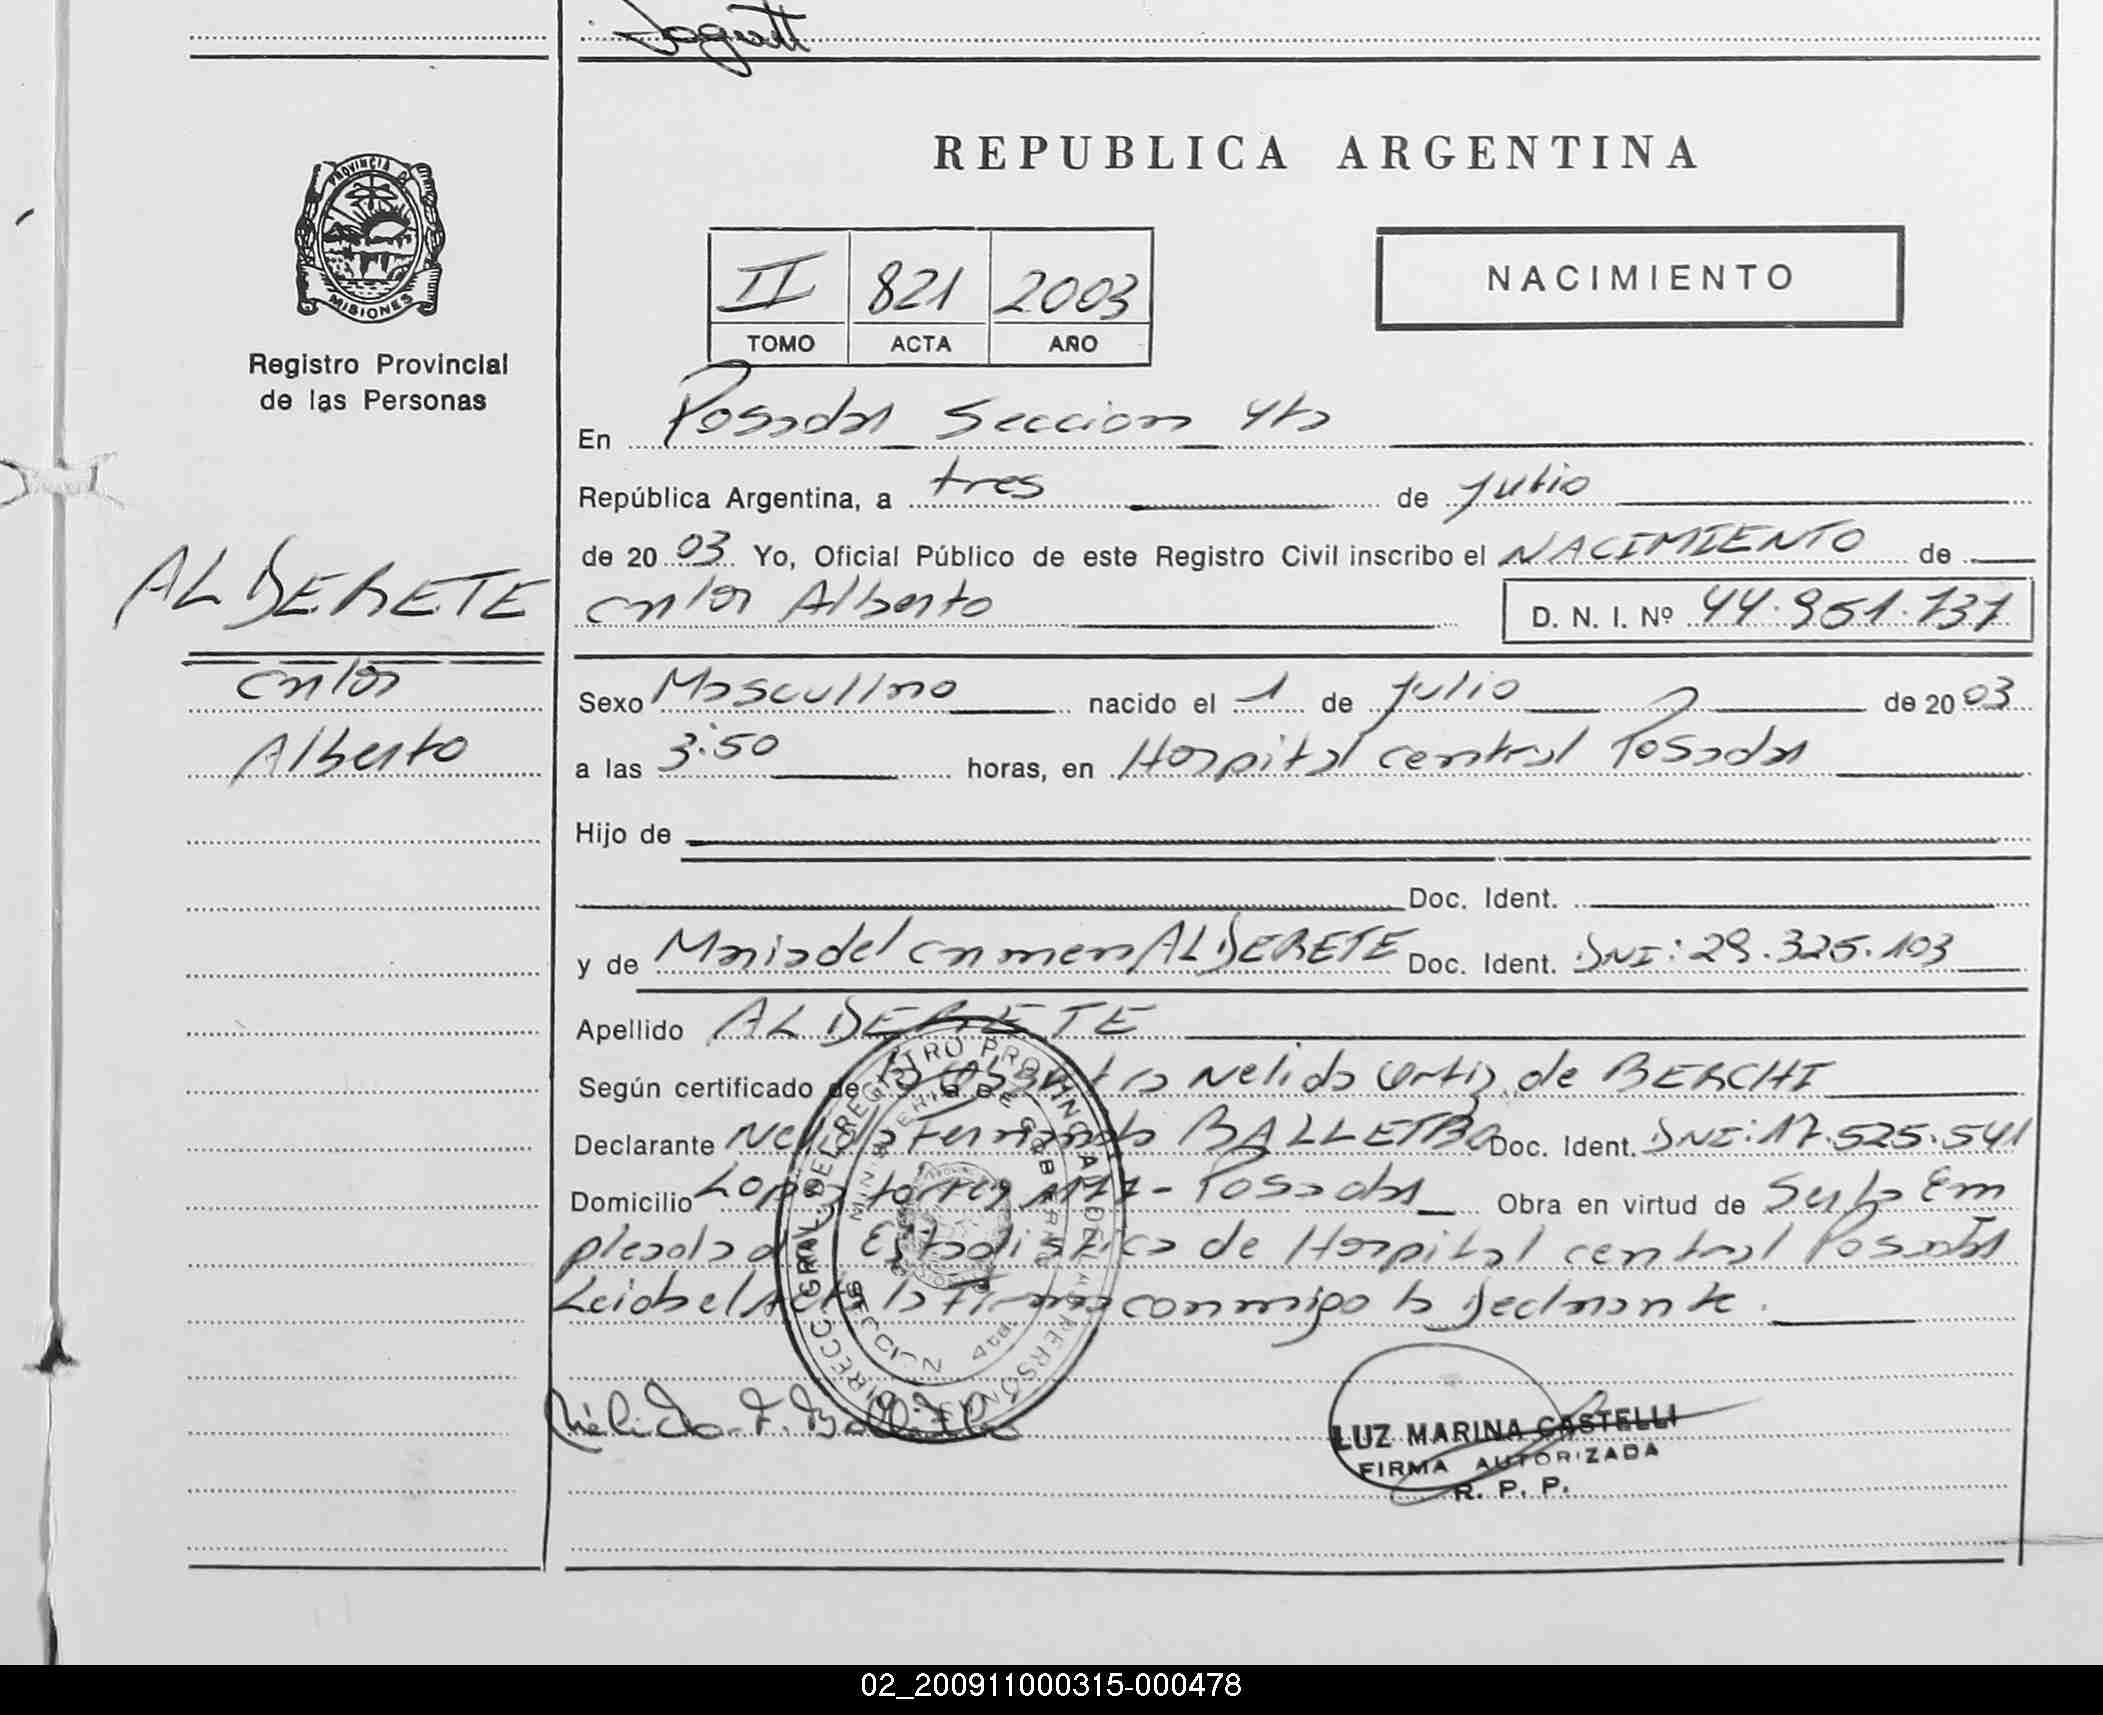 REPUBLICA ARGENTINA
PROVINCIA DE
MISIONES
Registro Provincial
de las Personas
II 821 2003
TOMO ACTA AÑO
NACIMIENTO
En Posadas Seccion 4ta
República Argentina, a tres de Julio
de 2003 Yo, Oficial Público de este Registro Civil inscribo el NACIMIENTO de
Carlos Alberto D. N. I. Nº 44.951.737
ALDERETE
Carlos
Alberto
Sexo Masculino nacido el 1 de Julio de 2003
a las 3:50 horas, en Hospital central Posadas
Hijo de
Doc. Ident.
y de Maria del carmen ALDERETE Doc. Ident. DNI: 29.325.103
Apellido ALDERETE
Según certificado de la Obstetra Nelida Ortiz de BERCHI
Declarante Nelida Fernanda BALLETBO Doc. Ident. DNI: 17.525.541
Domicilio Lopez torres - Posadas Obra en virtud de Ser la Em
pleada de Estadistica de Hospital central Posadas
Leida el Acta la Firma conmigo la Declarante.
DIRECC. GRAL. DEL REGISTRO PROVINCIAL DE LAS PERSONAS
MINISTERIO DE GOBIERNO
4ta.
Nélida F.
LUZ MARINA CASTELLI
FIRMA AUTORIZADA
R. P. P.
02_200911000315-000478